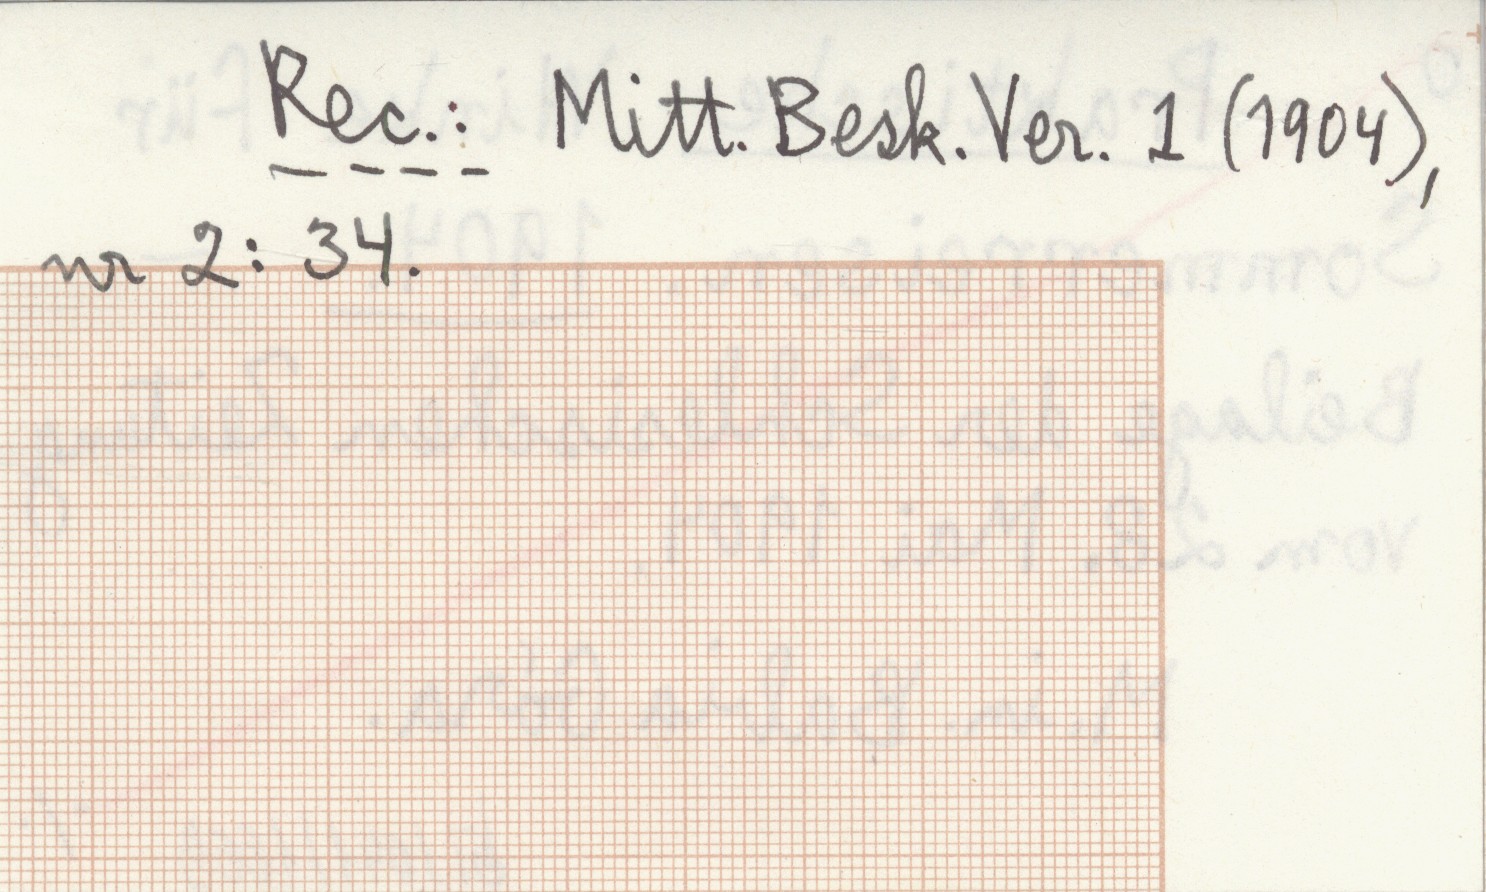 Rec.: Mitt. Besk. Ver. 1 (1904),
nr 2: 34.